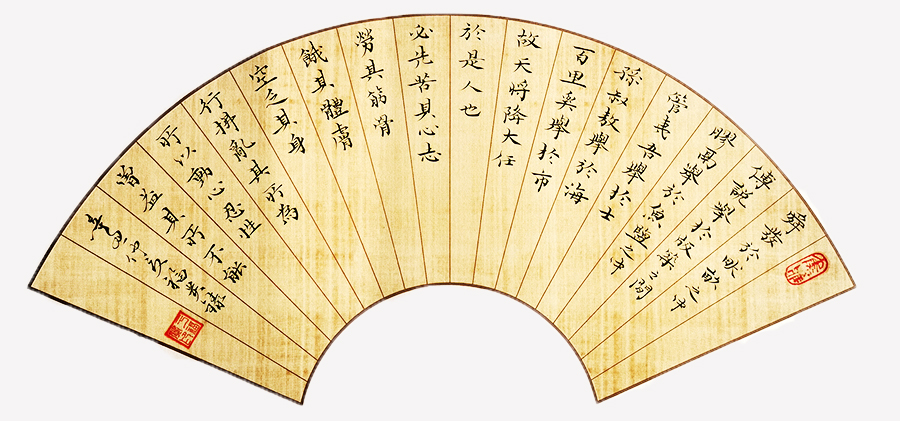 舜發於畎畝之中
傅說舉於版築之間
膠鬲舉於魚鹽之中
管夷吾舉於士
孫叔敖舉於海
百里奚舉於市
故天將降大任
於是人也
必先苦其心志
勞其筋骨
餓其體膚
空乏其身
行拂亂其所為
所以動心忍性
曾益其所不能